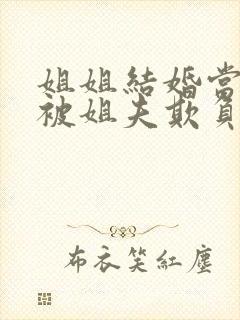 姐姐結婚當
被姐夫欺負
布衣笑紅塵